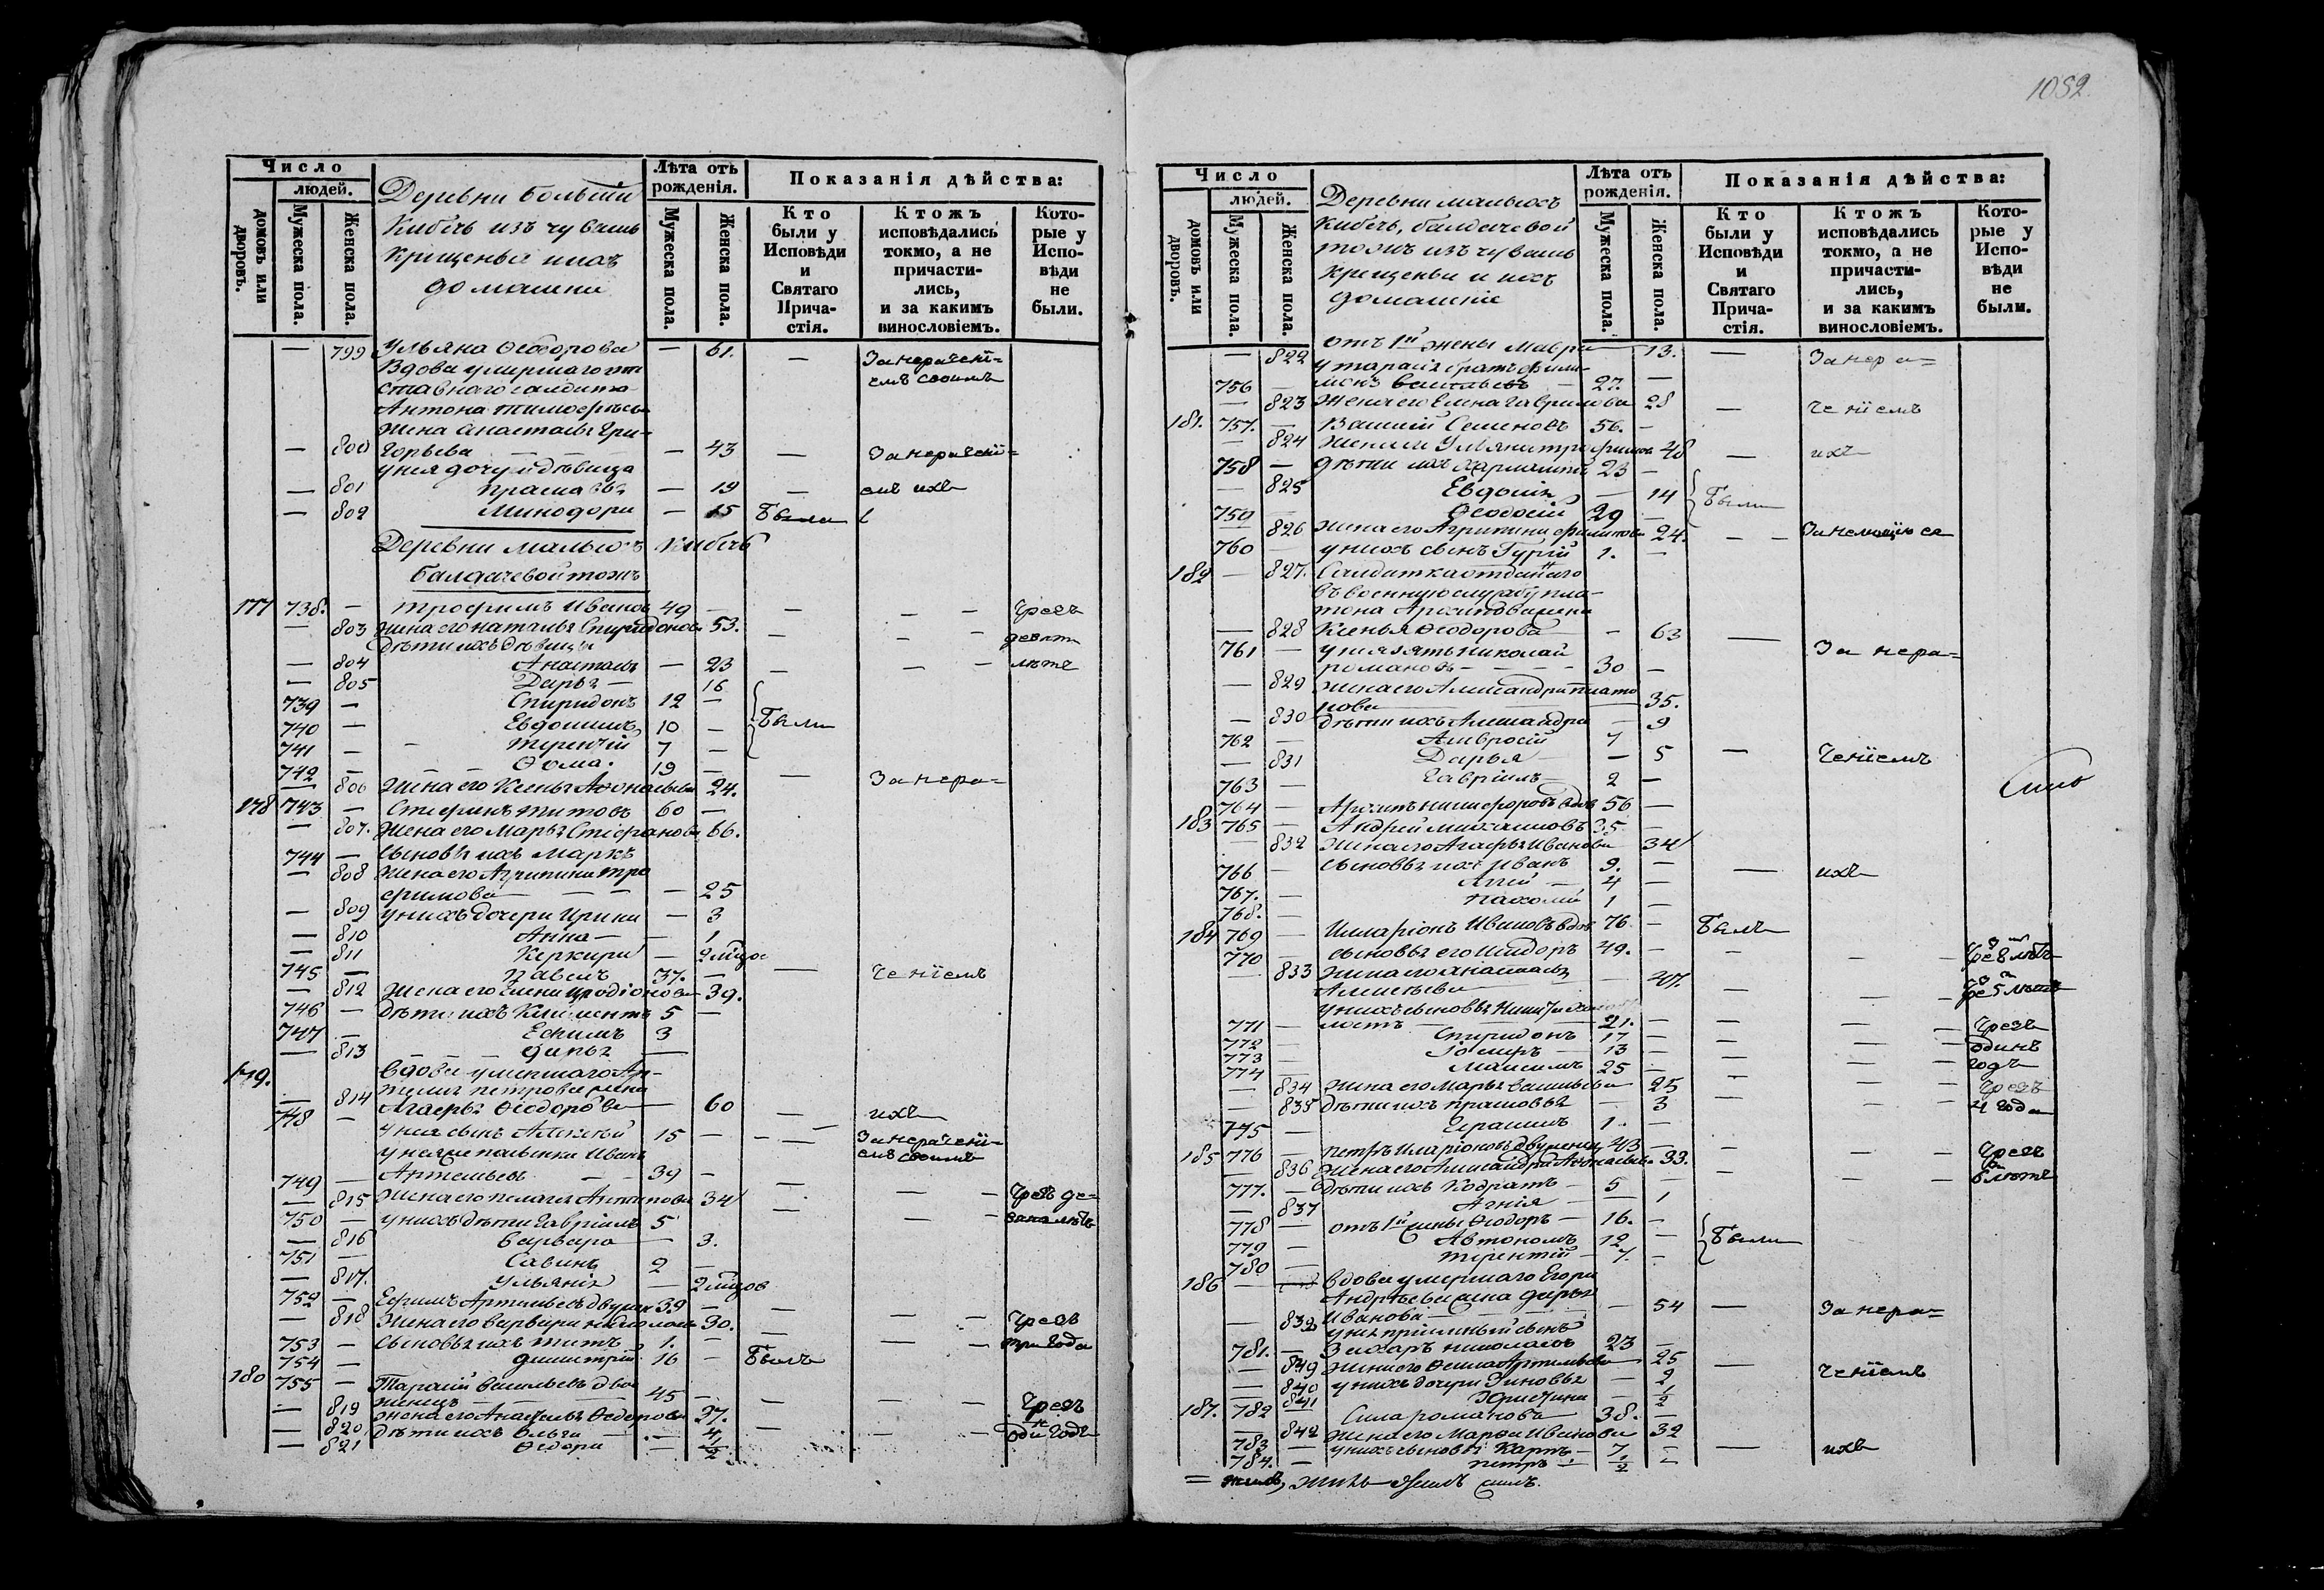 1052.
Число
людей.
домовъ или дворовъ.
Мужеска пола.
Женска пола.
Деревни большiи
Кибечь изъ чувашъ
Крещеныя и ихъ
домашнiи
Лѣта отъ рожденія.
Мужеска пола.
Женска пола.
Показанія дѣйства:
Кто были у Исповѣди и Святаго Прича- стія.
Ктожъ исповѣдались токмо, а не причасти- лись, и за какимъ винословіемъ.
Кото- рые у Испо- вѣди не были.
— 799 Ульяна Ѳеодорова — 61. — За нерачені-
Вдова умершаго от емъ своимъ
ставнаго салдата
Антона Тимофѣева
жена Анастасья Гри-
— 800 горьева — 43 — За нерачені-
у нея дочери дѣвица
— 801 Прасковья — 19 — емъ ихъ
— 802 Минодора — 15 Была
Деревни малыхъ Кибечь
балдаевой тожъ
177 738. — Трофимъ Ивановъ 49 — — — Чрезъ
— 803 жена его Наталья Спиридонова 53. — — девять
дѣти ихъ дѣвицы
— 804 Анастасья — 23 — — лѣтъ
— 805 Дарья — 16
739 — Спиридонъ 12 —
740 — Евдокимъ 10 — Были
741 — Терентій 7 —
742 — Ѳома. 19 —
— 806 жена его Ксенья Аѳонасьева 24. — За нера-
178 743 — Стефанъ Титовъ 60 —
— 807. жена его Марья Стефанова 66.
744 — сыновья ихъ Маркъ
— 808 жена его Агрипина Тро
фимова — 25
— 809 у нихъ дочери Ирина — 3
— 810 Анна — 1
— 811 Керкира —
745 — Павелъ 37. — — ченіемъ
— 812 жена его Елена Иродіонова 39.
746 — дѣти ихъ Климентъ 5 —
747 — Ефимъ 3
— 813 —
179. вдова умершаго Ар-
темья Петрова жена
— 814 Агафья Ѳеодорова — 60 — ихъ
748 — у нея сынъ Алексѣй 15 — — За нерачені-
у нея же пасынки Иванъ емъ своимъ
749 — Артемьевъ — 39 —
— 815 жена его Пелагея Антипова 34 — — Чрезъ де-
750 — у нихъ дѣти Гавріилъ 5 — —
— 816 Варвара — 3.
751 — Савинъ 2
— 817. Ульянія —
752 — Ефимъ Артемьевъ 39 —
— 818 жена его Варвара Николаева 30. — — Чрезъ
753 — сыновья ихъ Титъ 1. — — три года
754 — Димитрій 16 — Былъ
180 755 — Тарасій Васильевъ двое
женецъ 45 —
— 819 жена его Анастасья Ѳедорова 27. — — Чрезъ
— 820 дѣти ихъ Ольга — 4 — — одинъ годъ
— 821 Ѳедора — ½
Число
людей.
домовъ или дворовъ.
Мужеска пола.
Женска пола.
Деревни малыхъ
Кибечь, балдаевой
тожъ изъ чувашъ
крещеныя и ихъ
домашніе
Лѣта отъ рожденія.
Мужеска пола.
Женска пола.
Показанія дѣйства:
Кто были у Исповѣди и Святаго Прича- стія.
Ктожъ исповѣдались токмо, а не причасти- лись, и за какимъ винословіемъ.
Кото- рые у Испо- вѣди не были.
— 822 отъ 1й жены Мавра 13. — За нера-
у Тарасія братъ Фили-
756 — монъ Васильевъ — 27. —
— 823 жена его Елена Гаврилова 28 — ченіемъ
181. 757. — Василій Семеновъ 56. —
— 824 жена его Ульяна Трофимова 48 — ихъ
758 — дѣти ихъ 23 —
— 825 Евдокія — 14 Были
759 — Ѳеодосій 29 —
— 826 жена его Агрипина Филипова 24. — — За немощію ея
760 — у нихъ сынъ Гурій 1. —
182 — 827. Салдатка отданнаго
въ военную службу Пла-
тона Архипова жена
— 828 Ксенья Ѳеодорова — 63 —
761 — у нея зять Николай За нера-
Романовъ — 30 —
— 829 жена его Александра Плато
нова — 35.
— 830 дѣти ихъ Александра — 9
762 — Амвросій 7
— 831 Дарья — 5 — ченіемъ
763 — Гавріилъ — 2 —
764 — Архипъ Никифоровъ вдовъ 56 —
183 765 — Андрей Михаиловъ 35. —
— 832 жена его Агафья Иванова 34
766 — сыновья ихъ Иванъ 9. — — ихъ
767. — 4 —
768. — Пахомій 1 —
184 769 — Иларіонъ Ивановъ вдовъ 76 — Былъ
770 — сыновья его Исидоръ 49. — — —
— 833 жена его Анастасья — 47. — —
Алексѣева
у нихъ сыновья
771 — — 21. — — — Чрезъ
772 — Спиридонъ 17 — — — одинъ
773 — 13 — — годъ
774 — Максимъ 25 — — — Чрезъ
— 834 жена его Марья Васильева 25 — — 4 года
— 835 дѣти ихъ Прасковья — 3
775 — Герасимъ 1. —
185 776 — Петръ Иларіоновъ двуженец 43 — — — Чрезъ
— 836 жена его Александра Аѳонасьева 33. — — 6 лѣтъ
777. — дѣти ихъ Кодратъ — 5 —
— 837 Агнія — 1
778 — отъ 1й жены Ѳеодоръ — 16. —
779 — Автономъ 12 — Были
780 — Терентій — 7. —
186 — вдова умершаго Егора
Андреева жена Дарья
— 838 Иванова — 54 — За нера-
у нея пріемный сынъ
781. — Захаръ Николаевъ 23 —
— 839 жена его Ѳекла Артемьева 25 — ченіемъ
— 840 у нихъ дочери Зиновья — 2
— 841 Христина — ½
187. 782 — Сила Романовъ 38. —
— 842 жена его Марѳа Иванова 32
783 — у нихъ сыновья Карпъ — 7 — — ихъ
784. — Петръ — ½ —